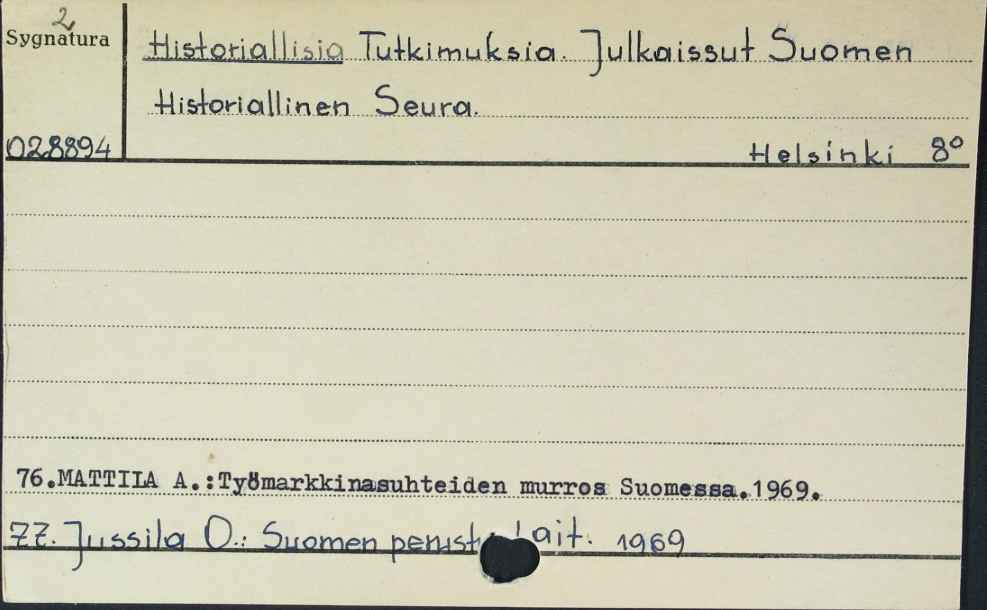 2
Sygnatura
Historiallisia Tutkimuksia. Julkaissut Suomen
Historiallinen Seura.
028894
Helsinki 8°
76.MATTILA A.:Työmarkkinasuhteiden murros Suomessa.1969.
77. Jussila O.: Suomen 1969